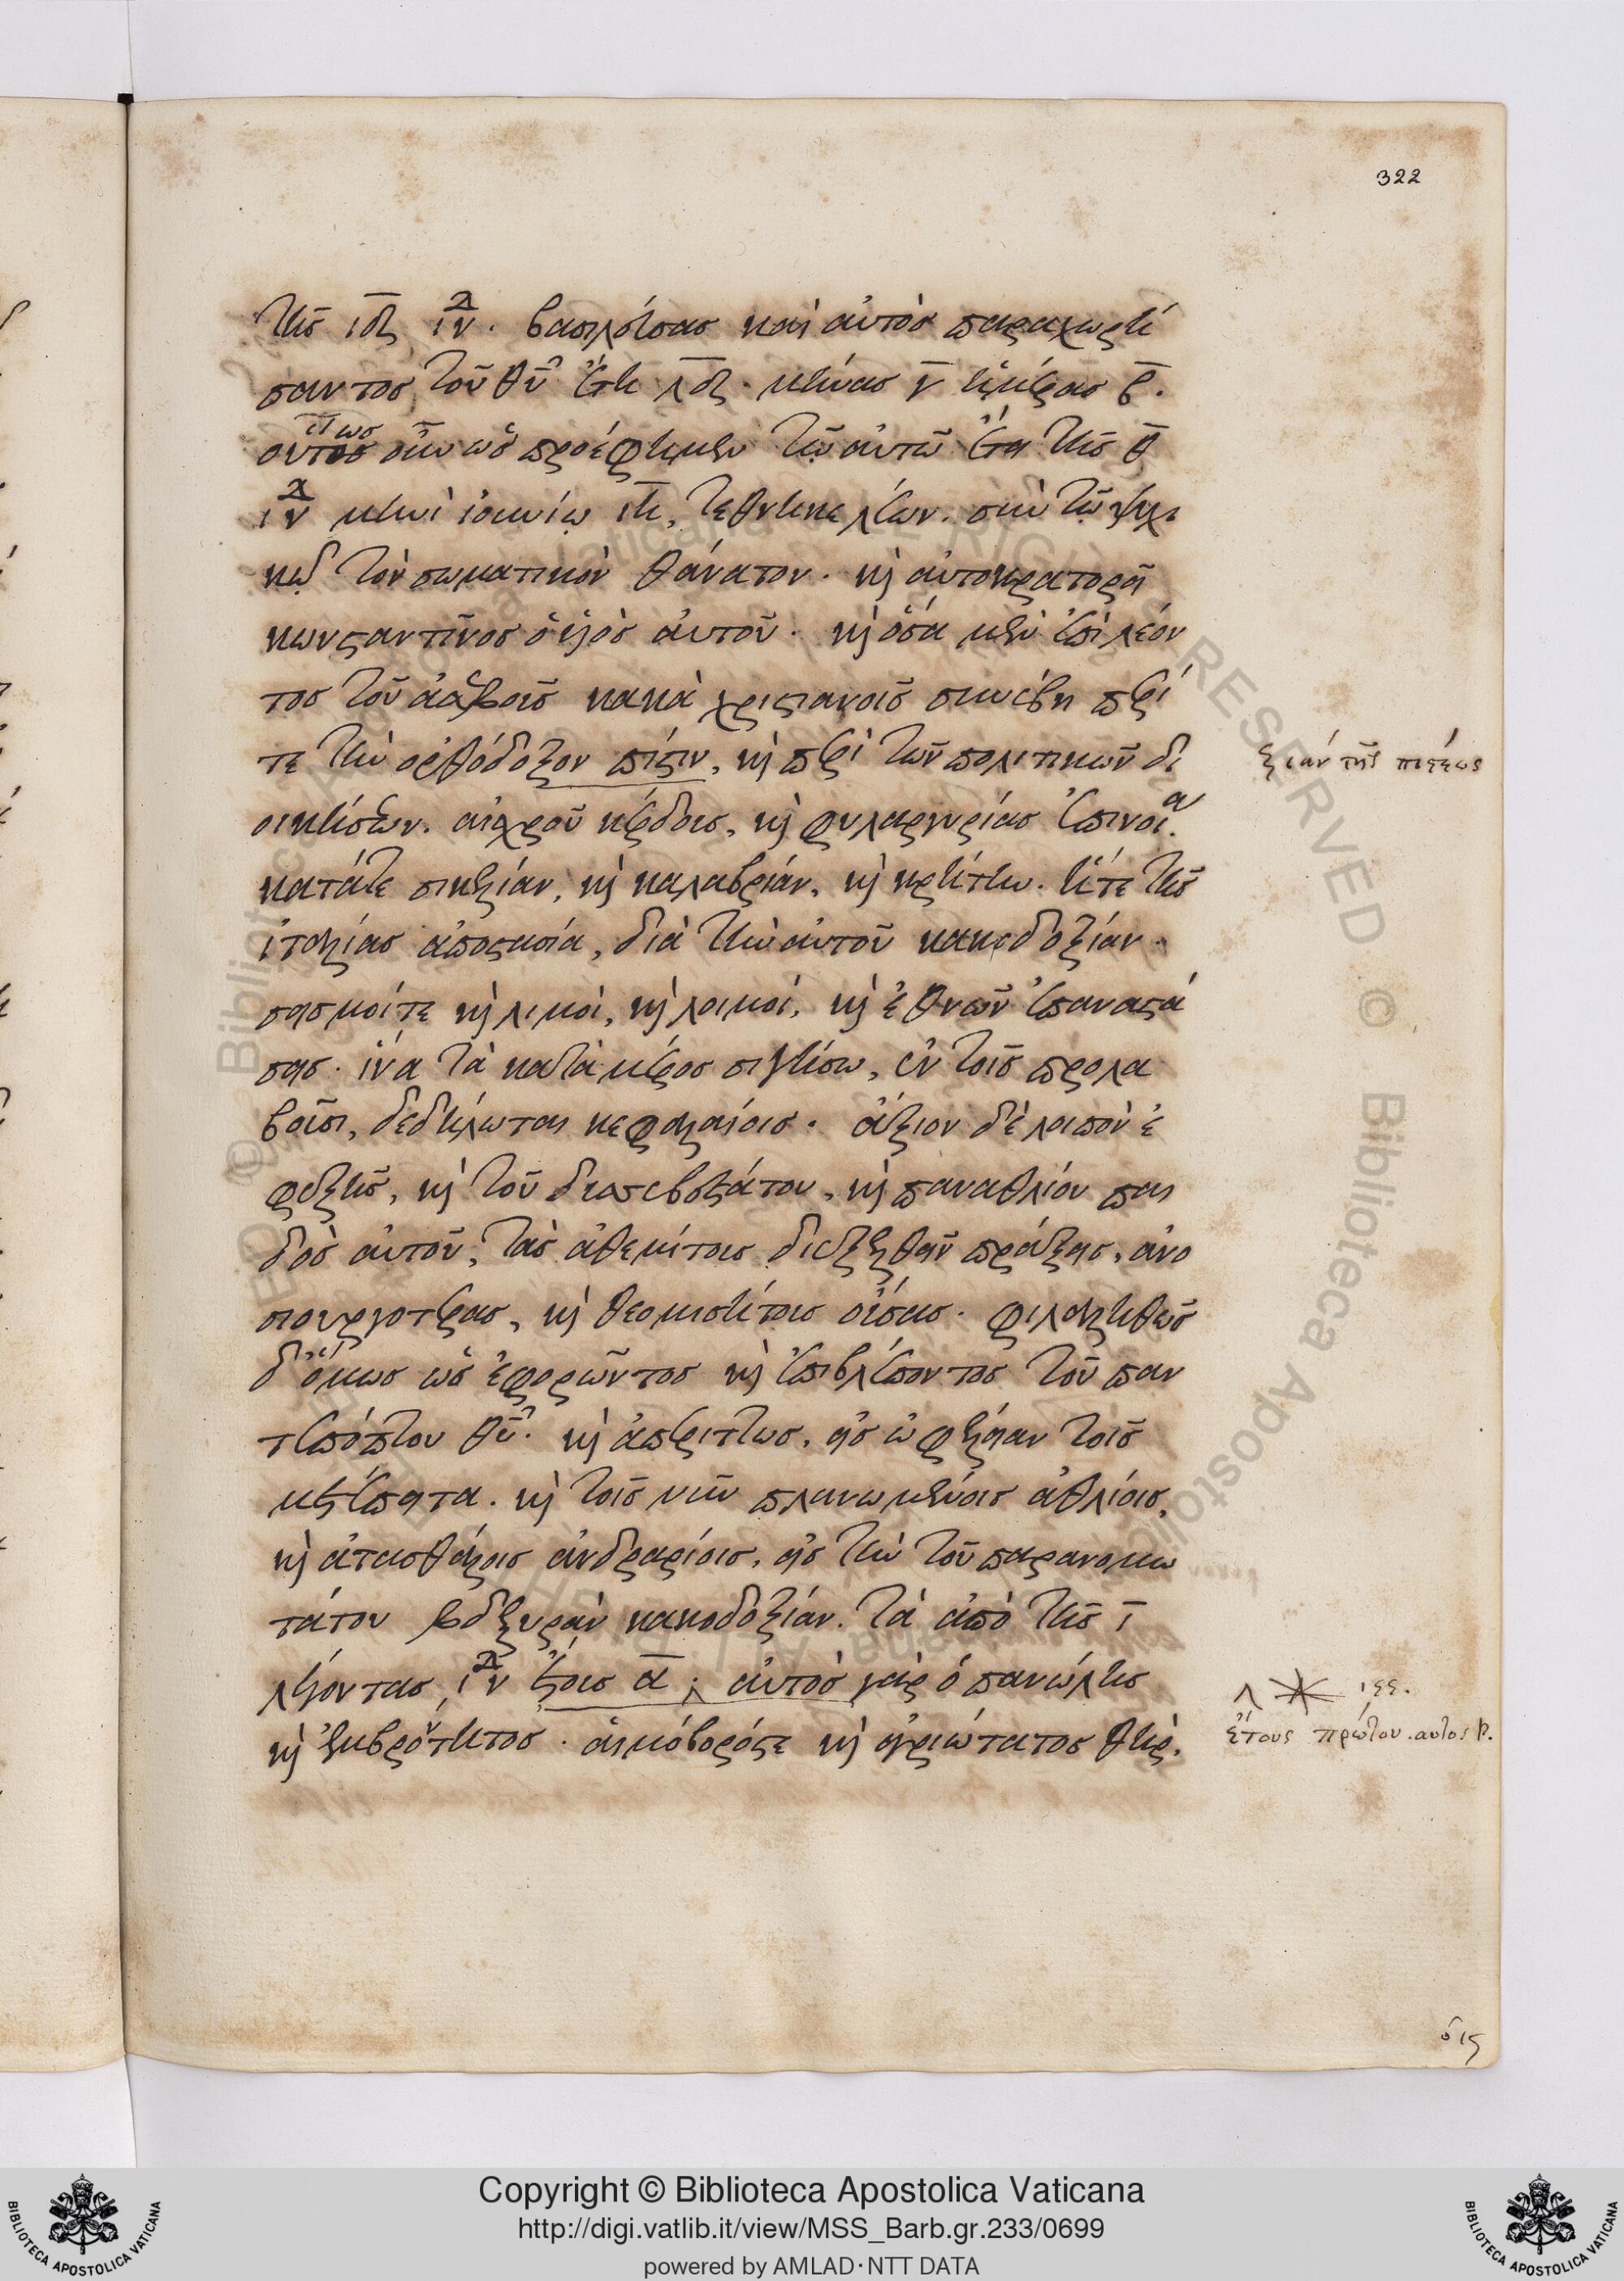 322
τῆς ιδ ἰν. βασιλεύσας καὶ αὐτὸς παραχωρή
σαντος τοῦ θυ ἔτη λδ. μῆνας γ ἡμέρας β.
οὕτως οὖν ὡς προέφημεν τῷ αὐτῷ ἔτει τῆς θ
ἰν μηνὶ ἰουνίω ιη, τέθνηκε λέων. σὺν τῷ ψυχι
κῷ τὸν σωματικὸν θάνατον. κὶ αὐτοκρατορεῖ
κωνσταντῖνος ὁ υἱὸς αὐτοῦ. κὶ ὅσα μὲν ἐπὶ λέον
τος τοῦ ἀσεβοῦς κακὰ χριστιανοῖς συνέβη περί
τε τὴν ὀρθόδοξον πίστιν, κὶ περὶ τῶν πολιτικῶν δι
οικήσεων. αἰσχροῦ κέρδους, κὶ φυλαργυρίας ἐπινοία.
κατάτε σικελίαν, κὶ καλαβρίαν, κὶ κρήτην. ἥτε τῆς
ἰταλίας ἀποστασία, διὰ τὴν αὐτοῦ κακοδοξίαν.
σεισμοίτε κὶ λιμοὶ, κὶ λοιμοί, κὶ ἐθνῶν ἐπαναστά
σεις. ἵνα τὰ κατὰ μέρος σιγήσω, ἐν τοῖς προλα
βοῦσι, δεδήλωται κεφαλαίοις. ἄξιον δὲ λοιπὸν ἐ
φεξῆς, κὶ τοῦ δυσσεβεστάτου, κὶ παναθλίου παι
δὸς αὐτοῦ, τὰς ἀθεμίτους διεξελθεῖν πράξεις, ἀνο
σιουργοτέρας, κὶ θεομισήτους οὔσας. φιλαλήθως
δ' ὅμως ὡς ἐφορῶντος κὶ ἐπιβλέποντος τοῦ παν
τεπόπτου θυ. κὶ ἀπερίττως, εἰς ὠφέλειαν τοῖς
μετέπειτα. κὶ τοῖς νῦν πλανωμένοις ἀθλίοις,
κὶ ἀτασθάλοις ἀνδραρίοις, εἰς τὴν τοῦ παρανομω
τάτου βδελυρὰν κακοδοξίαν. τὰ ἀπὸ τῆς ι
λέγοντας ἰν ἔτους α; αὐτὸς γὰρ ὁ πανώλης
κὶ ἐμβρόντητος. αἱμόβορόςτε κὶ ἀγριώτατος θὴρ.
ξιάν τῆς πίστεως
ἔτους πρώτου. αυτος
© Biblioteca Apostolica Vaticana ALL RIGHTS RESERVED
Copyright © Biblioteca Apostolica Vaticana
http://digi.vatlib.it/view/MSS_Barb.gr.233/0699
powered by AMLAD·NTT DATA
BIBLIOTECA APOSTOLICA VATICANA
BIBLIOTECA APOSTOLICA VATICANA